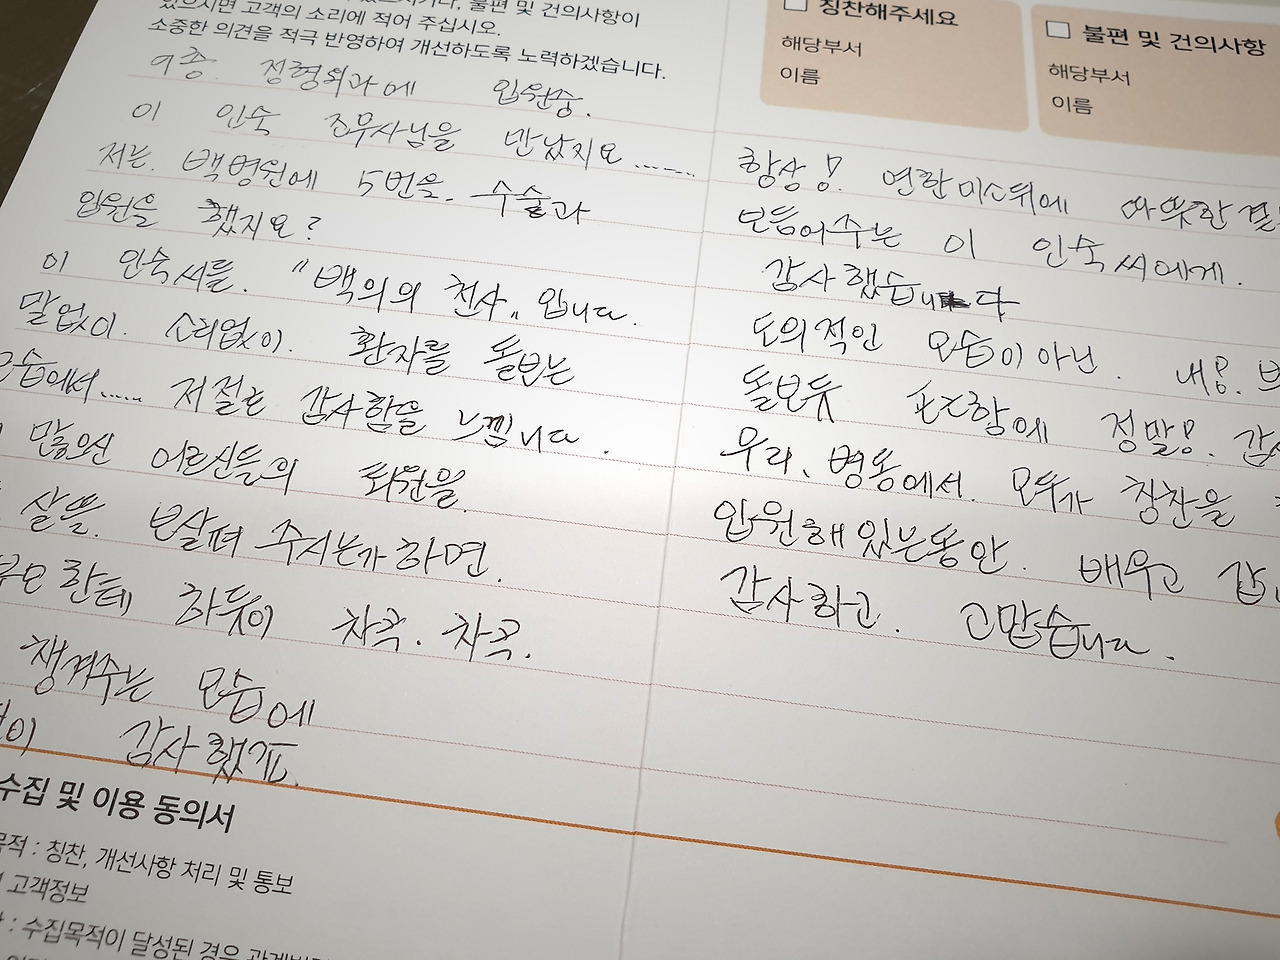 있으시면 고객의 소리에 적어 주십시오.
소중한 의견을 적극 반영하여 개선하도록 노력하겠습니다.
9층. 정형외과에 입원중.
이 인숙 조무사님을 만났지요......
저는. 백병원에 5번을. 수술과
입원을 했지요?
이 인숙씨를. "백의의 천사" 입니다.
말없이. 소리없이. 환자를 돌보는
모습에서..... 저절로 감사함을 느낌니다.
많으신 어르신들의 회원을.
살뜰. 보살펴 주시는가 하면.
부모한테 하듯이 차곡. 차곡.
챙겨주는 모습에
감사했고.
수집 및 이용 동의서
목적 : 칭찬, 개선사항 처리 및 통보
고객정보
: 수집목적이 달성된 경우
칭찬해주세요
해당부서
이름
불편 및 건의사항
해당부서
이름
항상! 연한미소뒤에 따뜻한
보듬어주는 이 인숙씨에게.
감사했습니다
도의적인 모습이 아닌. 내몸.
돌보듯 정말!.
우리, 병동에서. 모두가 칭찬을
입원해있는동안. 배우고
감사하고. 고맙습니다.